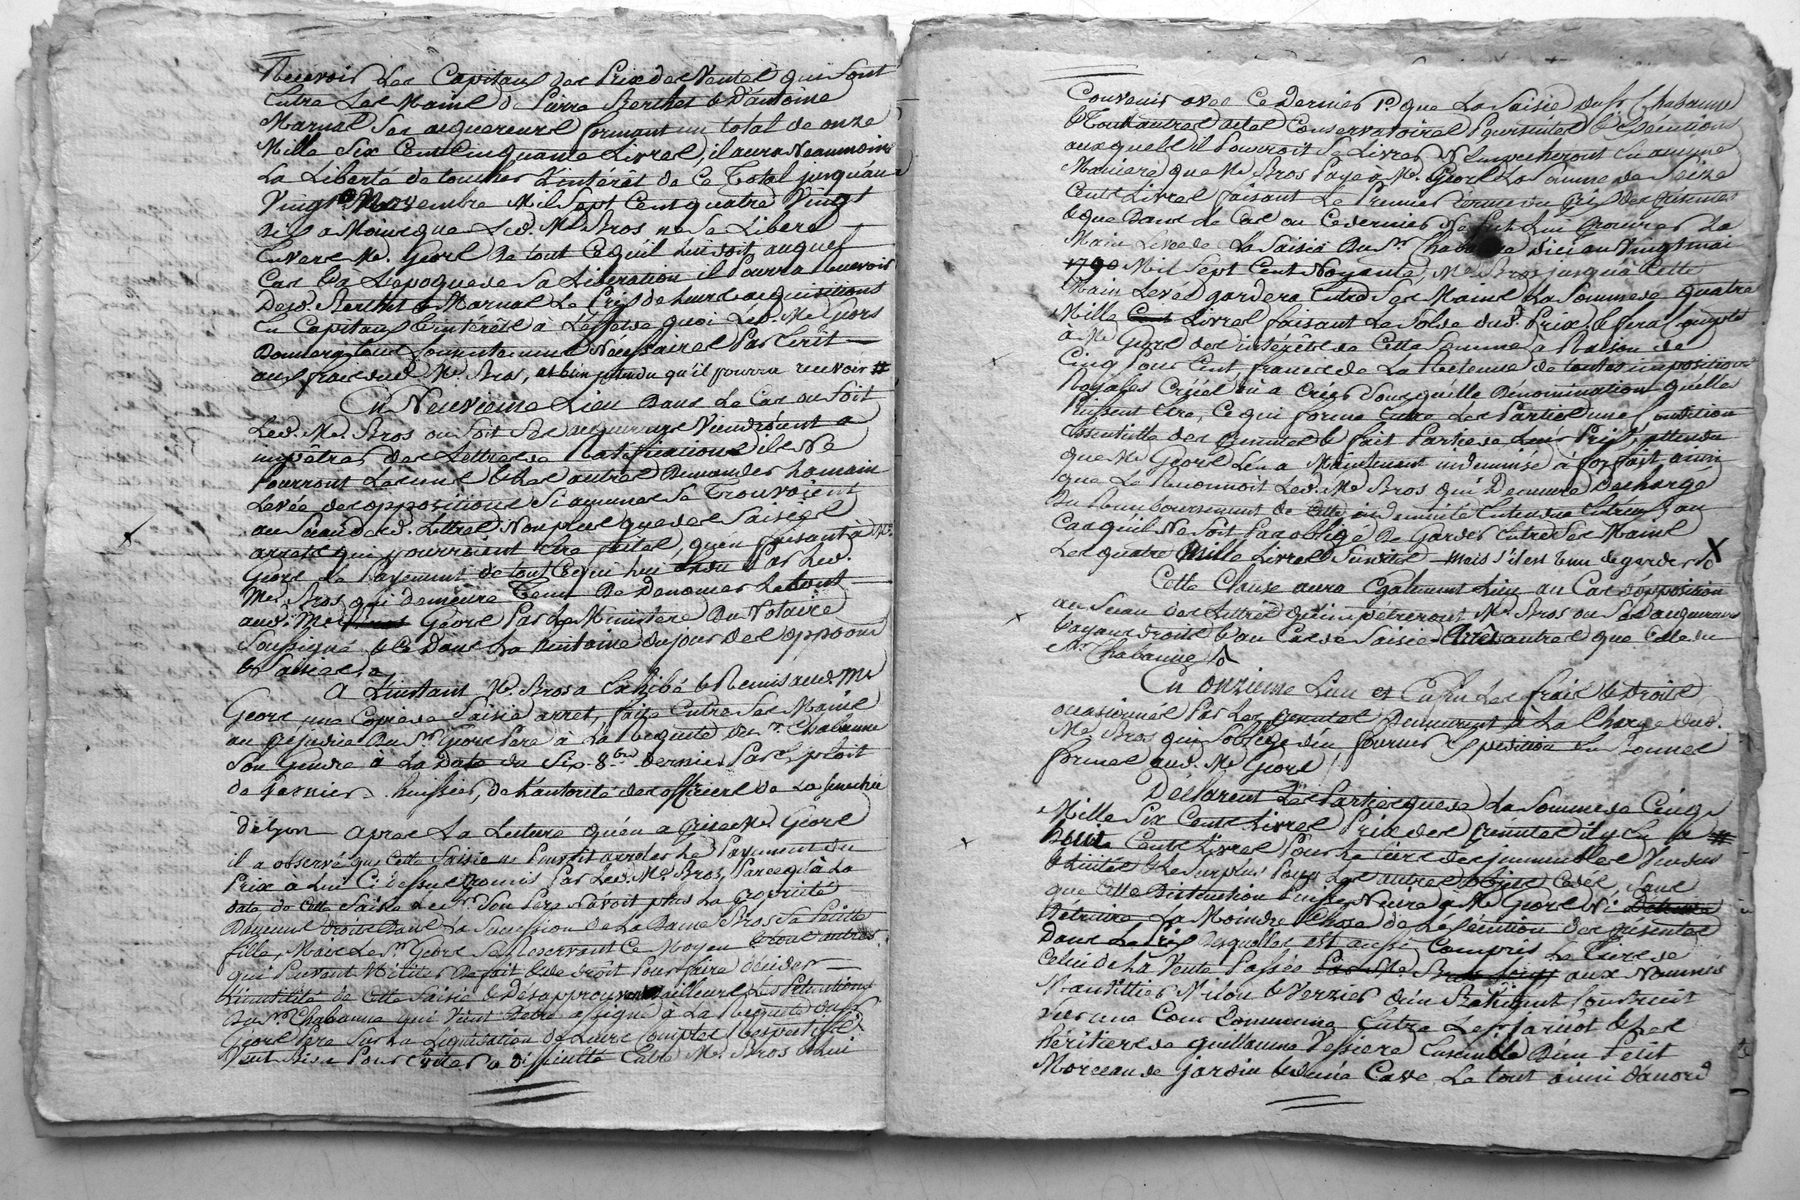 Recevoir Les Capitaux des Prix des Ventes qui sont
Entre Les Mains de Pierre Berthet & D'antoine
Marnas Ses acquereurs formant un total de onze
Mille Six Cent Cinquante Livres, il aura Neaumoins
La Liberté de toucher L'intérêt de Ce Total jusqu'au
Vingt Novembre Mil Sept Cent quatre Vingt
à Moins que Led. Me Bros ne se Libere
Envers Me. Geors De tout Ce qu'il lui doit auquel
Cas & à L'epoque de Sa Libération il Pourra Recevoir
Desd. Berthet & Marnas Le Prix de leurs acquisitions
En Capitaux & intérêts à L'effet de quoi Led. Me Geors
Donnera tous Consentemens Nécessaires Par Ecrit
aux frais dud. Me. Bros, et bien entendu qu'il pourra recevoir #
En Neuvieme Lieu Dans Le Cas ou Soit
Led. Me. Bros ou Soit Ses acquereurs Viendroient a
impétrer des Lettres de Ratifications ils Ne
Pourront Les uns & Les autres Demander La main
Levée des oppositions Si aucunes Se Trouvoient
au Sceau desd. Lettres Non plus que des Saisies
arrets qui pourroient être faites, qu'en faisant à Me.
Geors Le Payement de tout Ce qui lui Par Led.
Me. Bros qui demeure Tenu De Denoncer Le tout
aud. Me Geors Par Le Ministere Du Notaire
Soussigné & Ce Dans La huitaine du jour des oppositions
& Saisies
A L'instant Me. Bros a Exhibé & Remis aud. Me
Geors une Copie de Saisie arret, faite Entre Ses Mains
au préjudice Du Sr. Geors Pere à La Requête du Sr. Chabanne
Son Gendre à La Date du Six 8bre Dernier Par Exploit
de huissier, de L'autorité des officiers de La Senechée
de Lyon apres La Lecture qu'en a prise Me. Geors
il a observé que Cette Saisie ne Pourroit arreter Le Payement du
Prix à Lui Ci dessus Promis Par Led. Me. Bros, Parcequ'à La
date de Cette Saisie Le Sr. Son Pere n'avoit plus La Propriété
D'aucuns droits Dans La Succession de La Dame Bros Sa Petitte
fille, Mais Le Sr. Geors Se Reservant Ce Moyen & tous autres
qui Peuvent Militer De fait & de droit Pour faire décider
L'inutilité de Cette Saisie & Désapprouvant d'ailleurs Les Pétentions
Du Sr. Chabanne qui Vient d'etre assigné à La Requête du Sr
Geors Pere Sur La Liquidation de Leurs Comptes Respectifs
Veut Bien Pour Eviter a difficulté Entre Me. Bros & Lui
Convenir avec Ce Dernier 1° que La Saisie du Sr Chabanne
& Tout autres actes Conservatoires Poursuites & Exécutions
auxquels il Pourroit Se Livrer N'Empecheront En aucune
Maniere que Me Bros Paye a Me. Geors La Somme de Seize
Cents Livres faisant Le Premier terme du Prix des présentes
& que Dans Le Cas ou Ce dernier Ne Put Lui Procurer La
Main Levée de La Saisie Du Sr Chabanne D'ici au Vingt mai
1790 Mil Sept Cent Noyante, Me Bros jusqu'à Cette
Main Levée gardera Entre Ses Mains La Somme de quatre
Mille Cent Livres faisant Le Solde dud. Prix, & fera Compte
à Me Geors des intérêts de Cette Somme a Raison de
Cinq Pour Cent, francs de La Retenue de toutes impositions
Royales Créées ou à Créer Sous quelle Dénomination quelles
Puissent être, Ce qui forme Entre Les Parties une Condition
Essentielle des présentes & fait Partie de Leur Prix, attendu
que Me Geors L'en a Maintenant indemnisé à forfait ainsi
que Le Reconnoit Led. Me Bros qui Demeure Déchargé
Du Remboursement de Cette indemnité au
Cas qu'il Ne Soit Pas obligé De Garder Entre Ses Mains
Les quatre Mille Livres Susdites mais s'il est tenu de garder X
Cette Clause aura Egalement Lieu au Cas d'opposition
au Sceau des Lettres qu'impetreront Me Bros ou Ses acquereurs
& ayans droits & au Cas de Saisies Arrêts autres que Celle du
Sr. Chabanne
En onzieme Lieu et Enfin Les frais & Droits
occasionnés Par Les présentes Demeurent à La Charge dud.
Me Bros qui s'oblige d'en fournir Expédition En bonne
forme aud. Me Geors
Déclarent Les Parties que de La Somme de Cinq
Mille Six Cent Livres Prix des présentes il y En a #
huit Cents Livres Pour La des immeubles Vendus
& Limités & Le Surplus Pour Les autres objets Cédés, Sans
que Cette Distinction Puisse Nuire a Me Geors Ni
Détruire La Moindre Chose de L'éxécution des présentes
Dans Le Prix Desquelles est aussi Compris Le Tiers de
Celui de La Vente Passée aux Nommés
Mauvittier Milon & Verzier d'un Bâtiment Construit
Vers une Cour Commune Entre Le Sr. Jaricot & Les
héritiers de Guillaume Vessiere Ensemble D'un Petit
Morceau de Jardin & d'une Cave Le tout ainsi d'accord